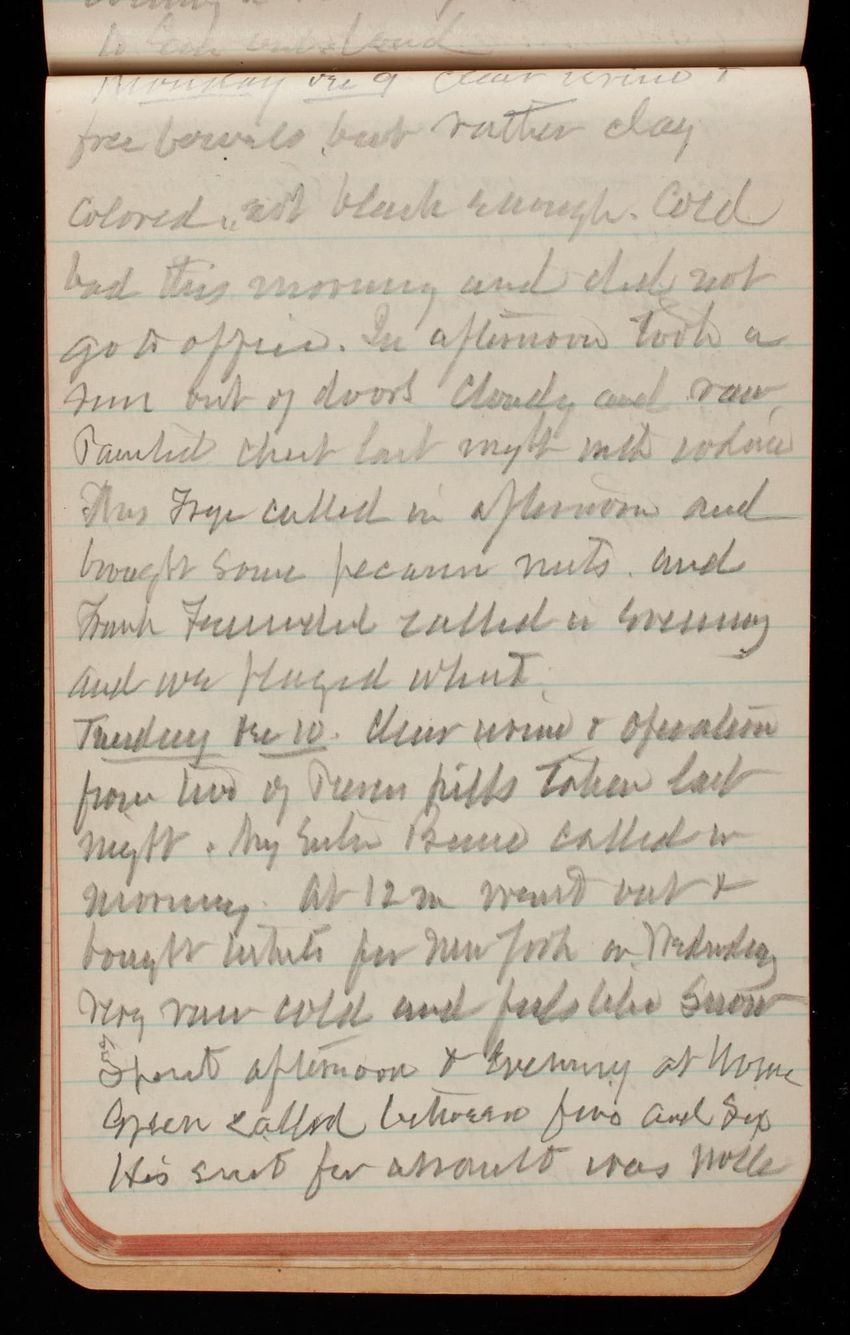 Monday Dec 9 Clear urine &
free bowels but rather clay
colored, not black enough. Cold
bad this morning and did not
go to office. In afternoon took a
run out of doors Cloudy and raw
Painted chest last night with iodine
Mrs Frye called in afternoon and
brought some pecann nuts. and
Frank called in evening
and we played whist.
Tuesday Dec 10. Clear urine & operation
from two of pills taken last
night. called in
morning. At 12 m went out &
bought tickets for New York on Wednesday
Very raw cold and feels like snow
Spent afternoon & Evening at home
Green called between five and Six
His suit for assault was Nolle